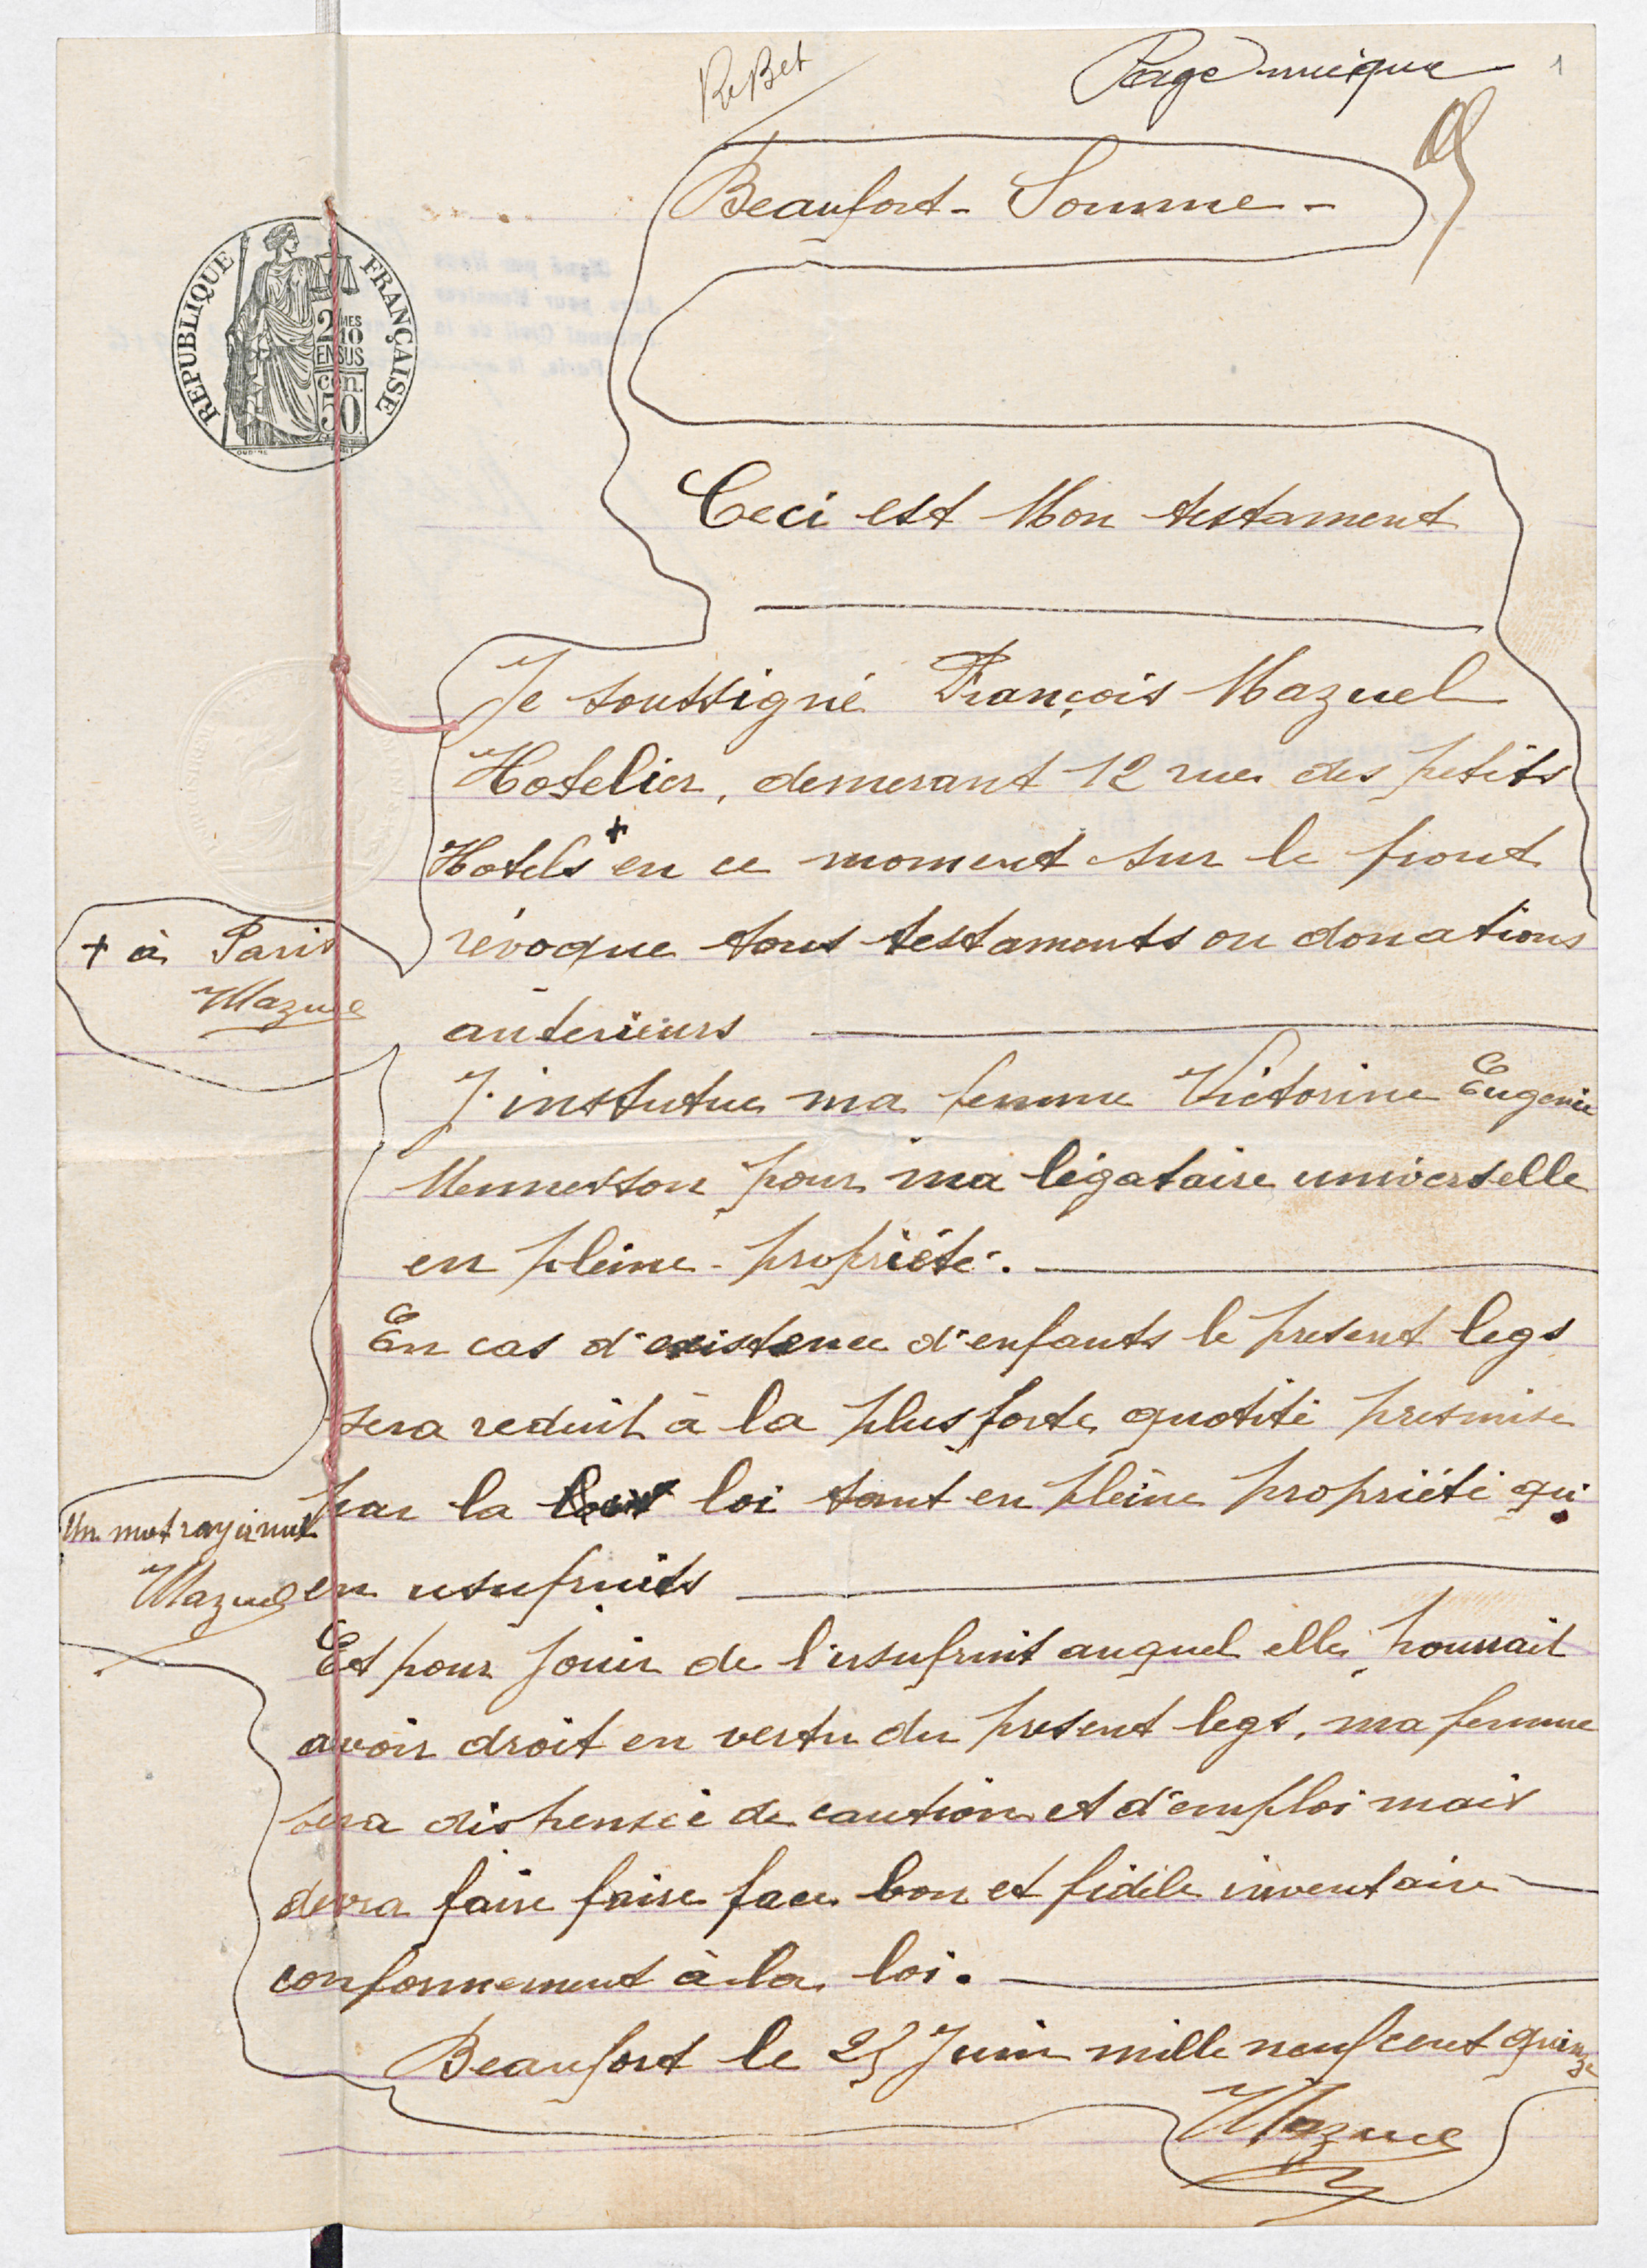 Page unique
1
Beaufort - Somme -
REPUBLIQUE FRANÇAISE
2 MES 10
EN SUS
cen.
50.
Ceci est Mon testament
Je soussigné François Mazuel
Hotelier, demerant 12 rue des petits
Hotels + en ce moment sur le front
+ à Paris
Mazuel
révoque tous testaments ou donations
anterieurs
J'instutue ma femme Victorine Eugenie
Mennesson pour ma légataire universelle
en pleine - propriété.
En cas d'existence d'enfants le present legs
sera reduit à la plus forte quotité presmise
par la loi tant en pleine propriété qu'
Un mot rayé nul
Mazuel
en usufruits
Et pour jouir de l'usufruit auquel elle pourrait
avoir droit en vertu du present legs, ma femme
sera dispensée de caution et d'emploi mais
devra faire faire face bon et fidèle inventaire
conformement à la loi.
Beaufort le 25 Juin mille neuf cent quinze
Mazuel